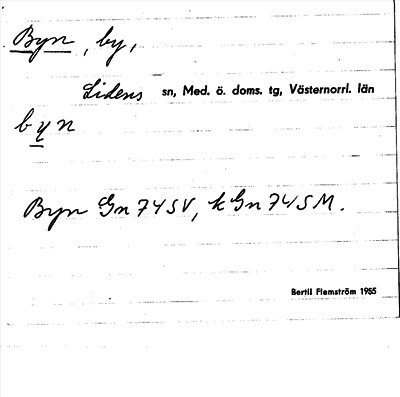 Byn, by,
Lidens sn, Med. ö. doms. tg, Västernorrl. län
byn
Byn Gn 74 SV, kGn 74 SM.
Bertil Flemström 1955